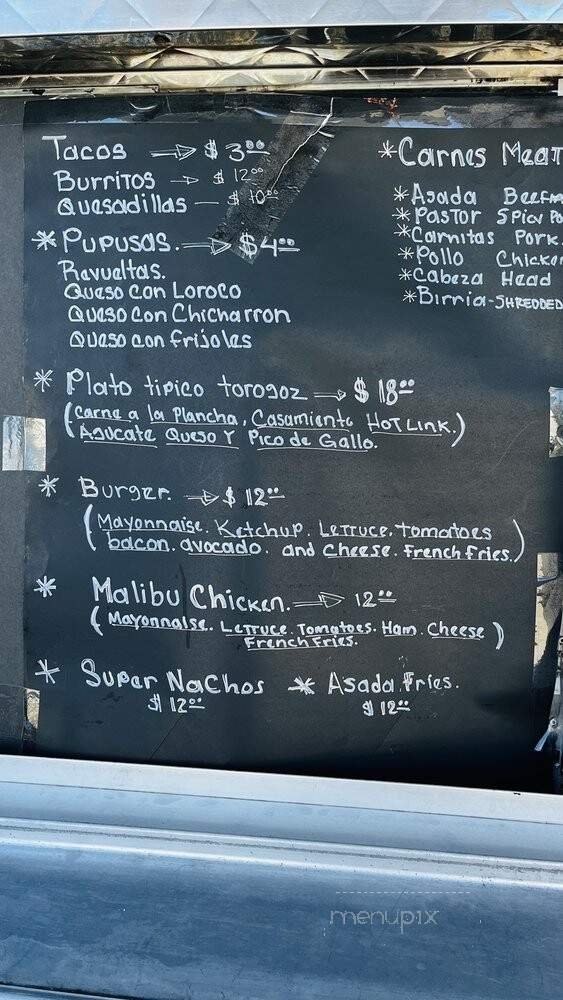 Tacos → $ 3.00
Burritos → $ 12.00
Quesadillas — $ 10.00
* Pupusas. → $4.00
Revueltas.
Queso con Loroco
Queso con Chicharron
Queso con frijoles
* Carnes Meat
* Asada Beef
* Pastor Spicy Po
* Carnitas Pork.
* Pollo Chicken
* Cabeza Head
* Birria-SHREDDED
* Plato tipico torogoz → $ 18.00
(Carne a la Plancha, Casamiento HOT Link.
Agucate Queso Y Pico de Gallo.)
* Burger. → $ 12.00
(Mayonnaise. Ketchup. Lettuce. Tomatoes
bacon. avocado. and Cheese. French Fries.)
* Malibu Chicken. → 12.00
(Mayonnaise. Lettuce. Tomatoes. Ham. Cheese
French Fries.)
* Super Nachos * Asada Fries.
$ 12.00 $ 12.00
menupix